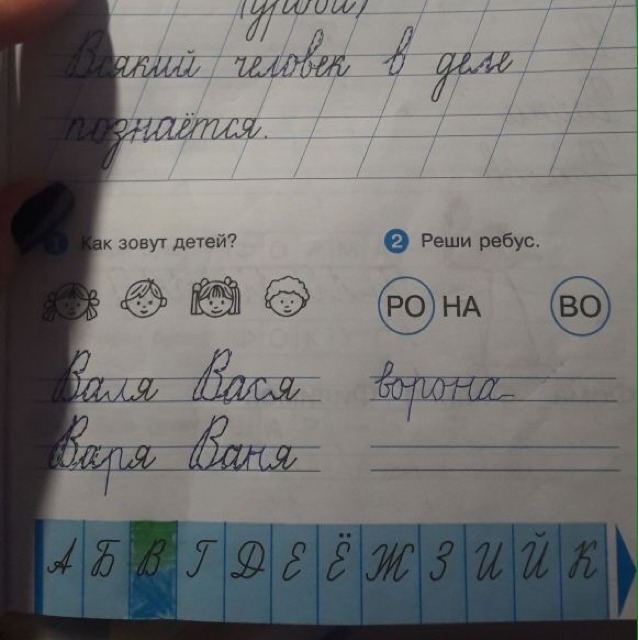 Всякий человек в деле
познаётся.
1 Как зовут детей?
2 Реши ребус.
РО НА ВО
Валя Вася
ворона
Варя Ваня
А Б В Г Д Е Ё Ж З И Й К